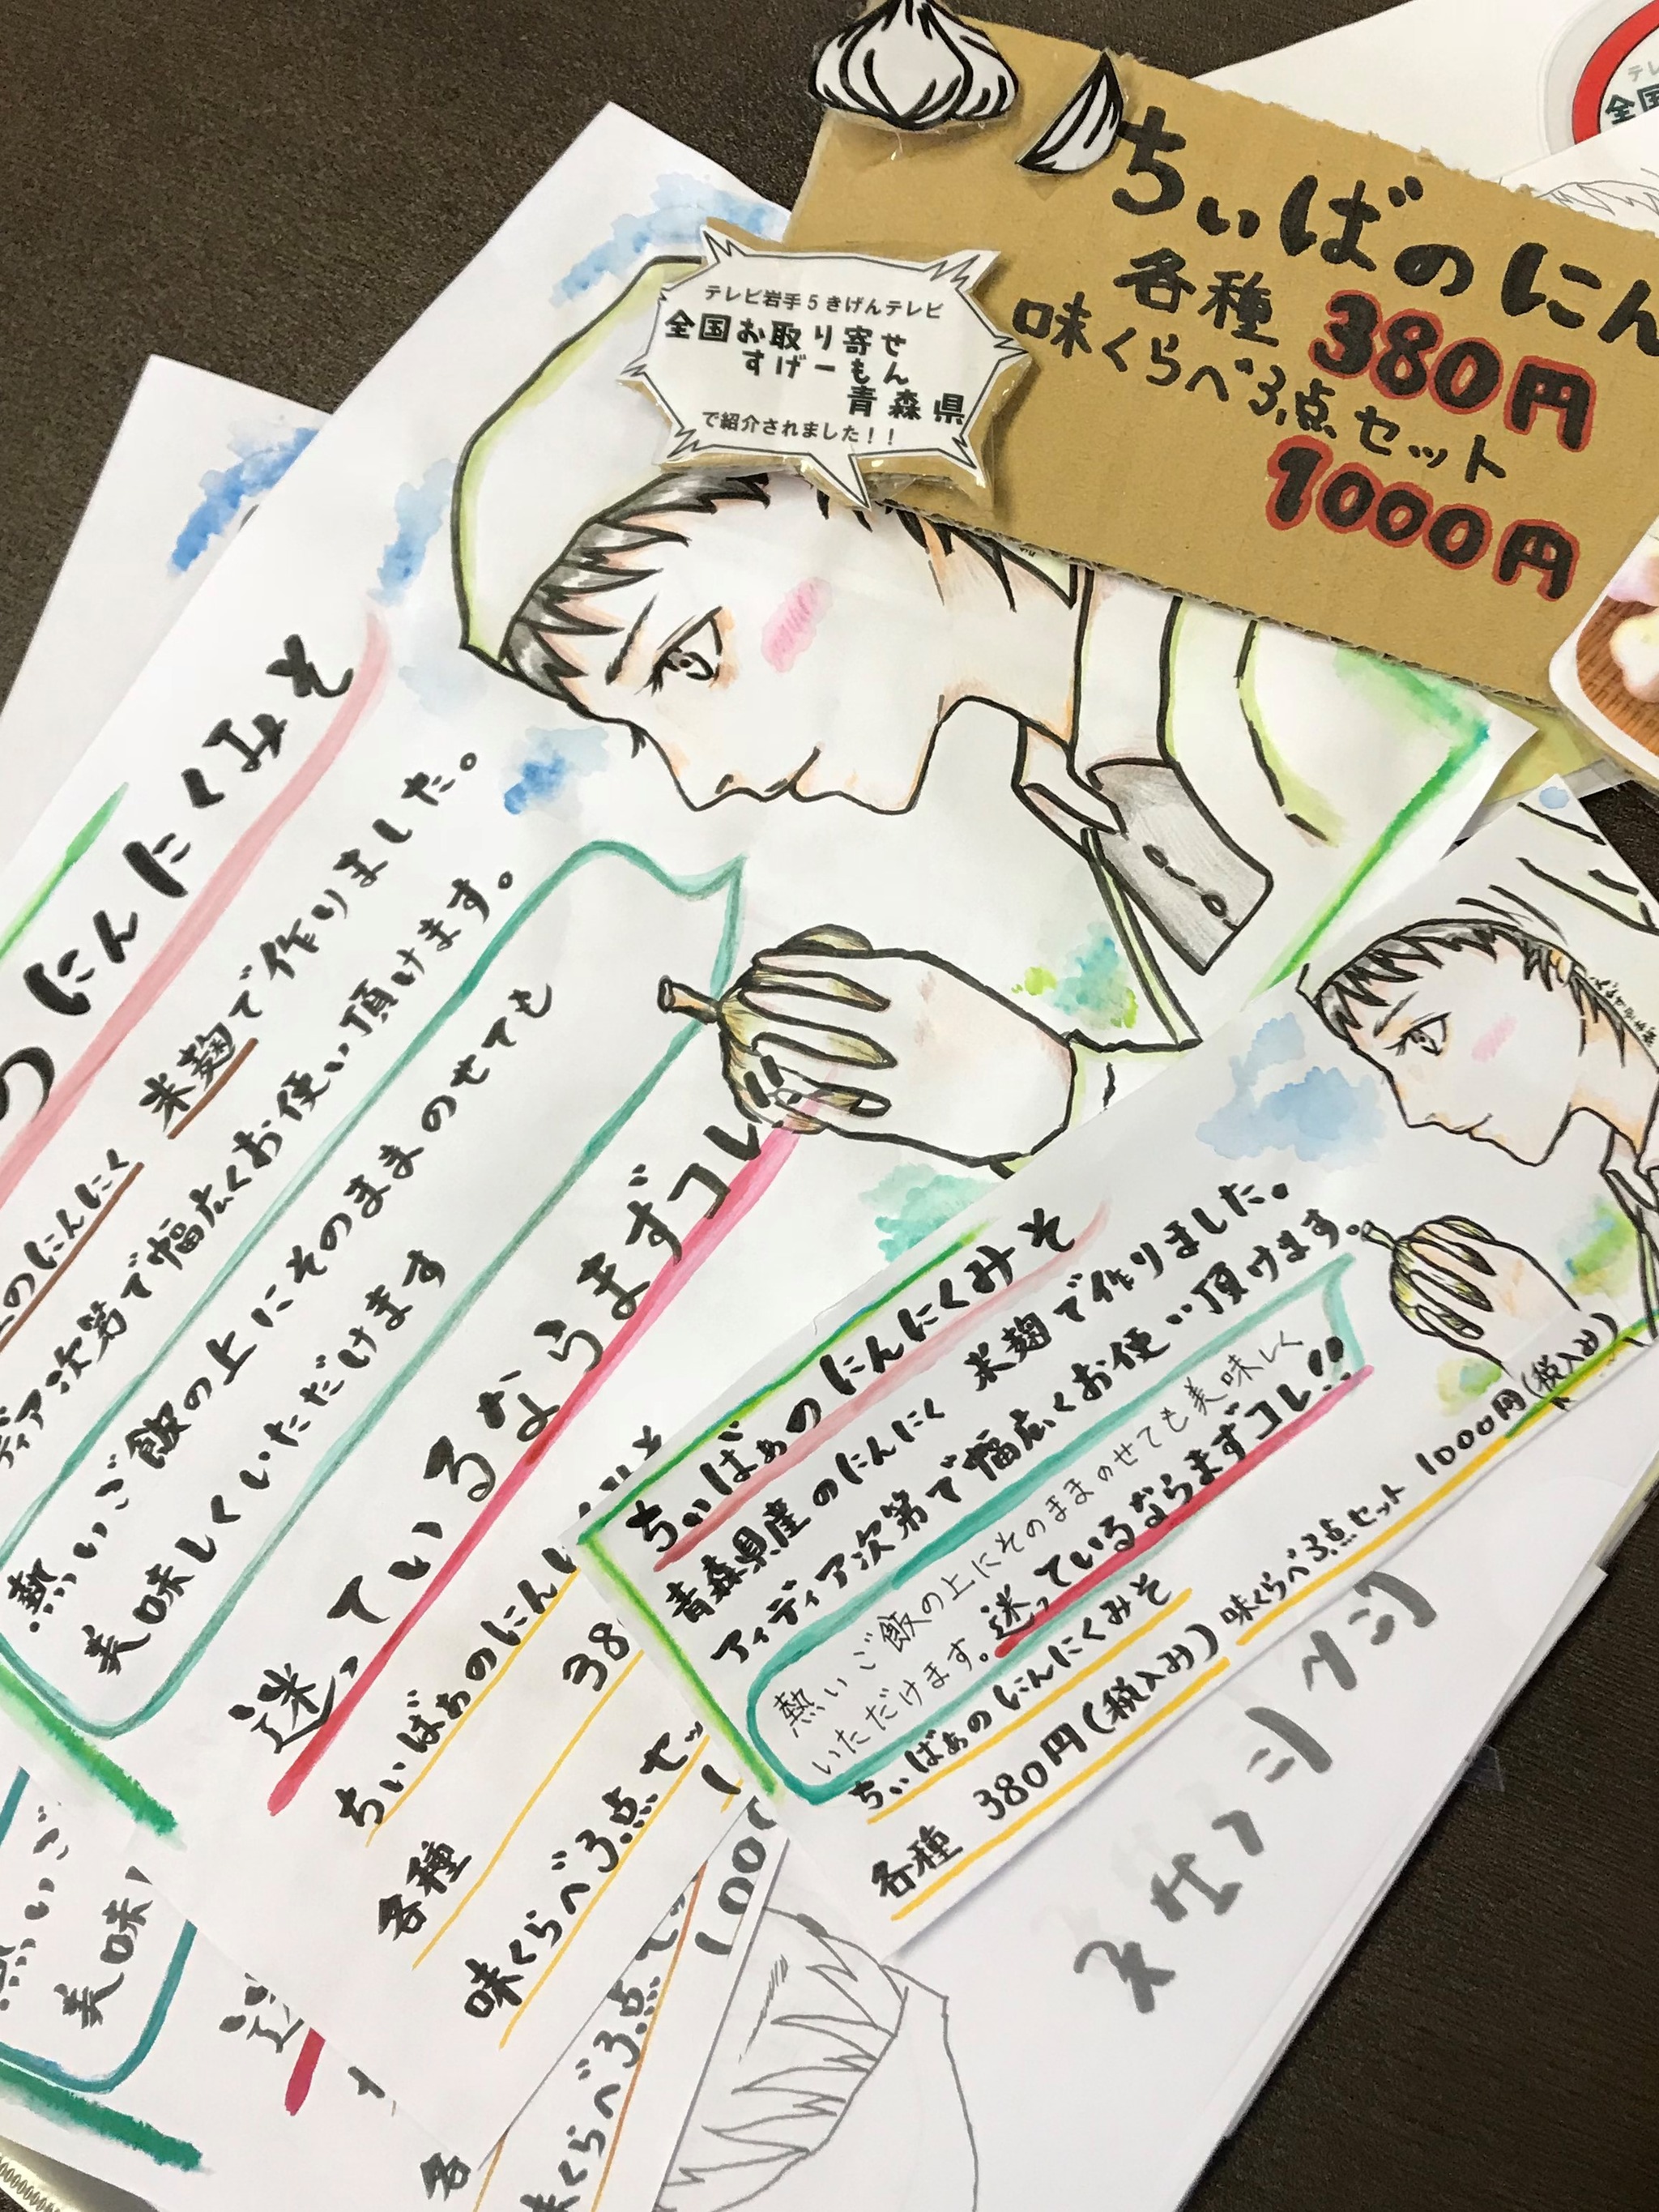 ちぃばのにん
各種 380円
味くらべ3点セット
1000円
テレビ岩手5きげんテレビ
全国お取り寄せ
すげーもん
青森県
で紹介されました!!
テレ
全国
の にんにくみそ
のにんにく 米麹で作りました。
ディア次第で幅広くお使い頂けます。
熱いご飯の上にそのままのせても
美味しくいただけます
迷っているならまずコレ
ちぃばぁのにんに
各種 38
味くらべ3点セッ
ちぃばぁのにんにくみそ
青森県産のにんにく 米麹で作りました。
アイディア次第で幅広くお使い頂けます。
熱いご飯の上にそのままのせても美味しく
いただけます。迷っているならまずコレ!!
ちぃばぁのにんにくみそ
各種 380円(税込み) 味くらべ3点セット 1000円(税込み)
熱いご
美味
迷
各
味くらべ3点セ
100